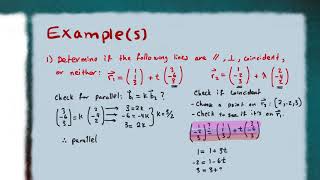 Example(s)
1) Determine if the following lines are //, ⊥, coincident,
or neither: r⃗₁ = (1 -2 3) + t (3 -6 3) r⃗₂ = (1 -2 3) + λ (2 -4 2)
Check for parallel: b⃗₁ = k b⃗₂ ?
(3 -6 3) = k (2 -4 2) → 3 = 2k
→ -6 = -4k } k = 3/2
→ 3 = 2k
∴ parallel
Check if coincident
- Choose a point on r⃗₂: (1, -2, 3)
- Check to see if it's on r⃗₁:
(1 -2 3) ?= (1 -2 3) + t (3 -6 3)
1 = 1 + 3t
-2 = 1 - 6t
3 = 3 +